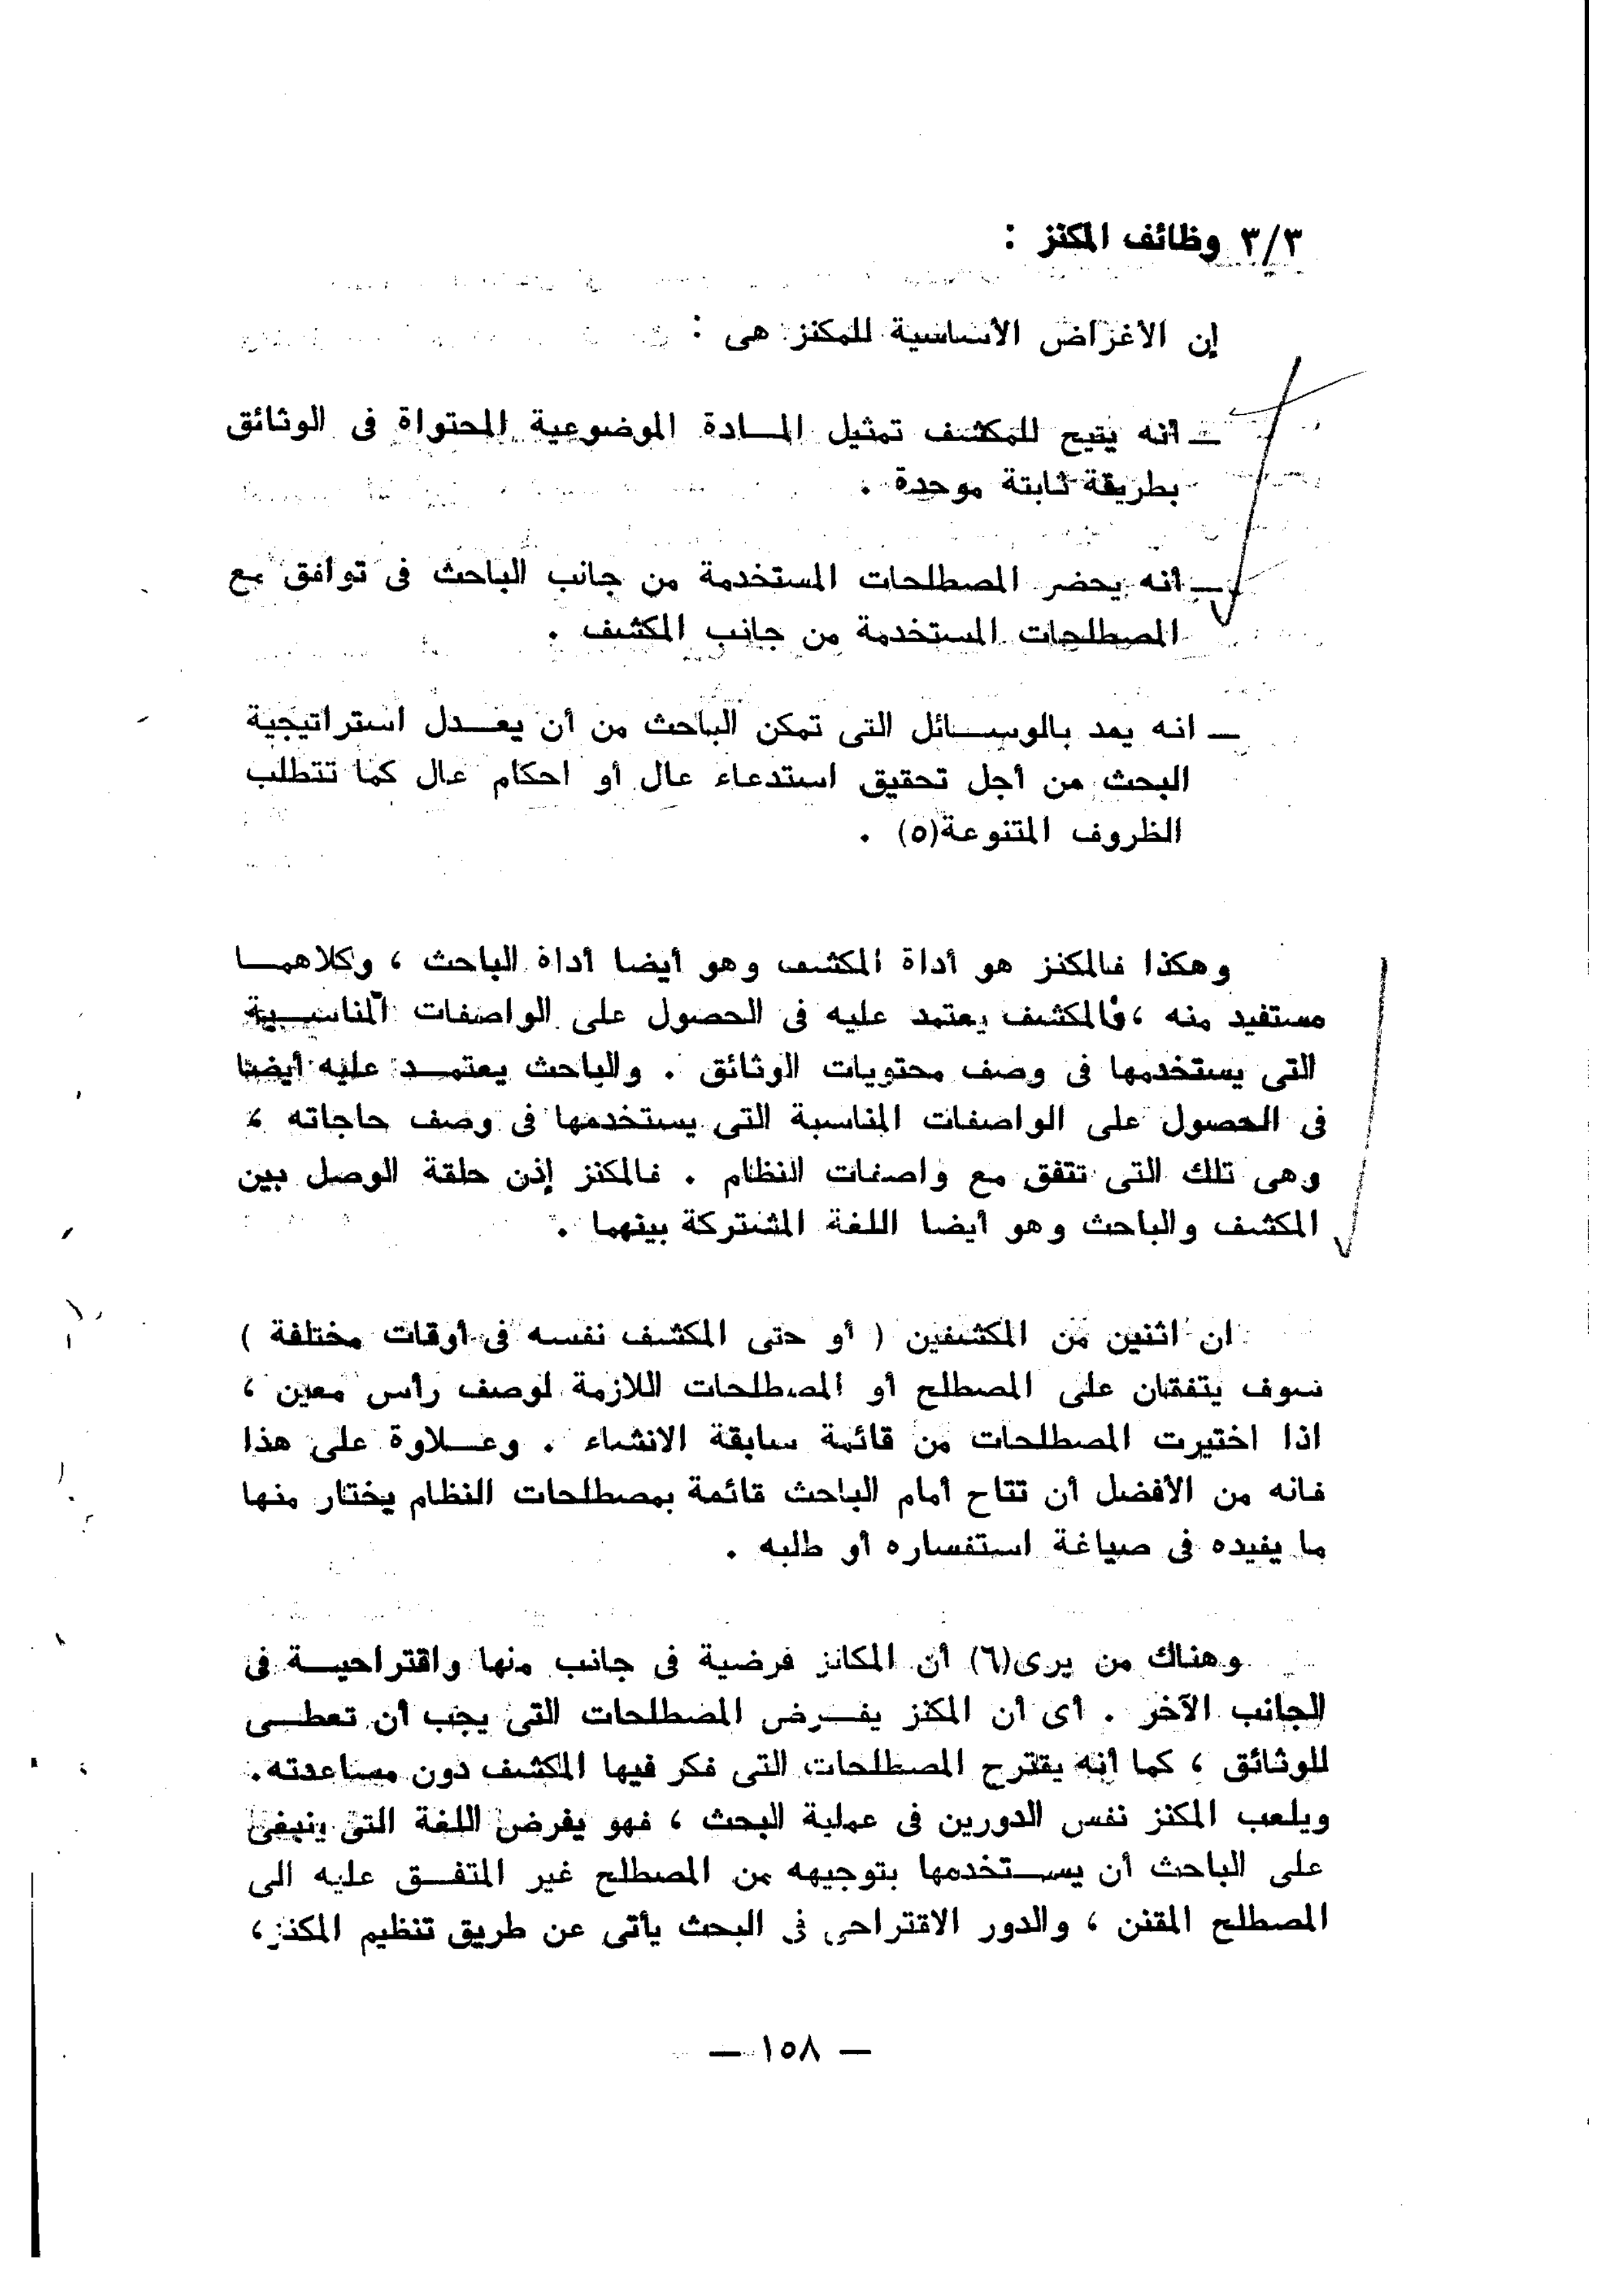 ٣/٣ وظائف المكنز :
إن الأغراض الأساسية للمكنز هى :
ـ أنه يتيح للمكشف تمثيل المـادة الموضوعية المحتواة فى الوثائق
بطريقة ثابتة موحدة .
ـ أنه يحضر المصطلحات المستخدمة من جانب الباحث فى توافق مع
المصطلحات المستخدمة من جانب المكشف .
ـ انه يمد بالوسـائل التى تمكن الباحث من أن يعـدل استراتيجية
البحث من أجل تحقيق استدعاء عال أو احكام عال كما تتطلب
الظروف المتنوعة(٥) .
وهكذا فالمكنز هو أداة المكشف وهو أيضا أداة الباحث ، وكلاهمـا
مستفيد منه ، فالمكشف يعتمد عليه فى الحصول على الواصفات المناسـبة
التى يستخدمها فى وصف محتويات الوثائق . والباحث يعتمـد عليه أيضا
فى الحصول على الواصفات المناسبة التى يستخدمها فى وصف حاجاته ،
وهى تلك التى تتفق مع واصفات النظام . فالمكنز إذن حلقة الوصل بين
المكشف والباحث وهو أيضا اللغة المشتركة بينهما .
ان اثنين من المكشفين ( أو حتى المكشف نفسه فى أوقات مختلفة )
سوف يتفقان على المصطلح أو المصطلحات اللازمة لوصف رأس معين ،
اذا اختيرت المصطلحات من قائمة سابقة الانشاء . وعـلاوة على هذا
فانه من الأفضل أن تتاح أمام الباحث قائمة بمصطلحات النظام يختار منها
ما يفيده فى صياغة استفساره أو طلبه .
وهناك من يرى(٦) أن المكانز فرضية فى جانب منها واقتراحيـة فى
الجانب الآخر . أى أن المكنز يفـرض المصطلحات التى يجب أن تعطـى
للوثائق ، كما أنه يقترح المصطلحات التى فكر فيها المكشف دون مساعدته.
ويلعب المكنز نفس الدورين فى عملية البحث ، فهو يفرض اللغة التى ينبغى
على الباحث أن يسـتخدمها بتوجيهه من المصطلح غير المتفـق عليه الى
المصطلح المقنن ، والدور الاقتراحى فى البحث يأتى عن طريق تنظيم المكنز،
— ١٥٨ —